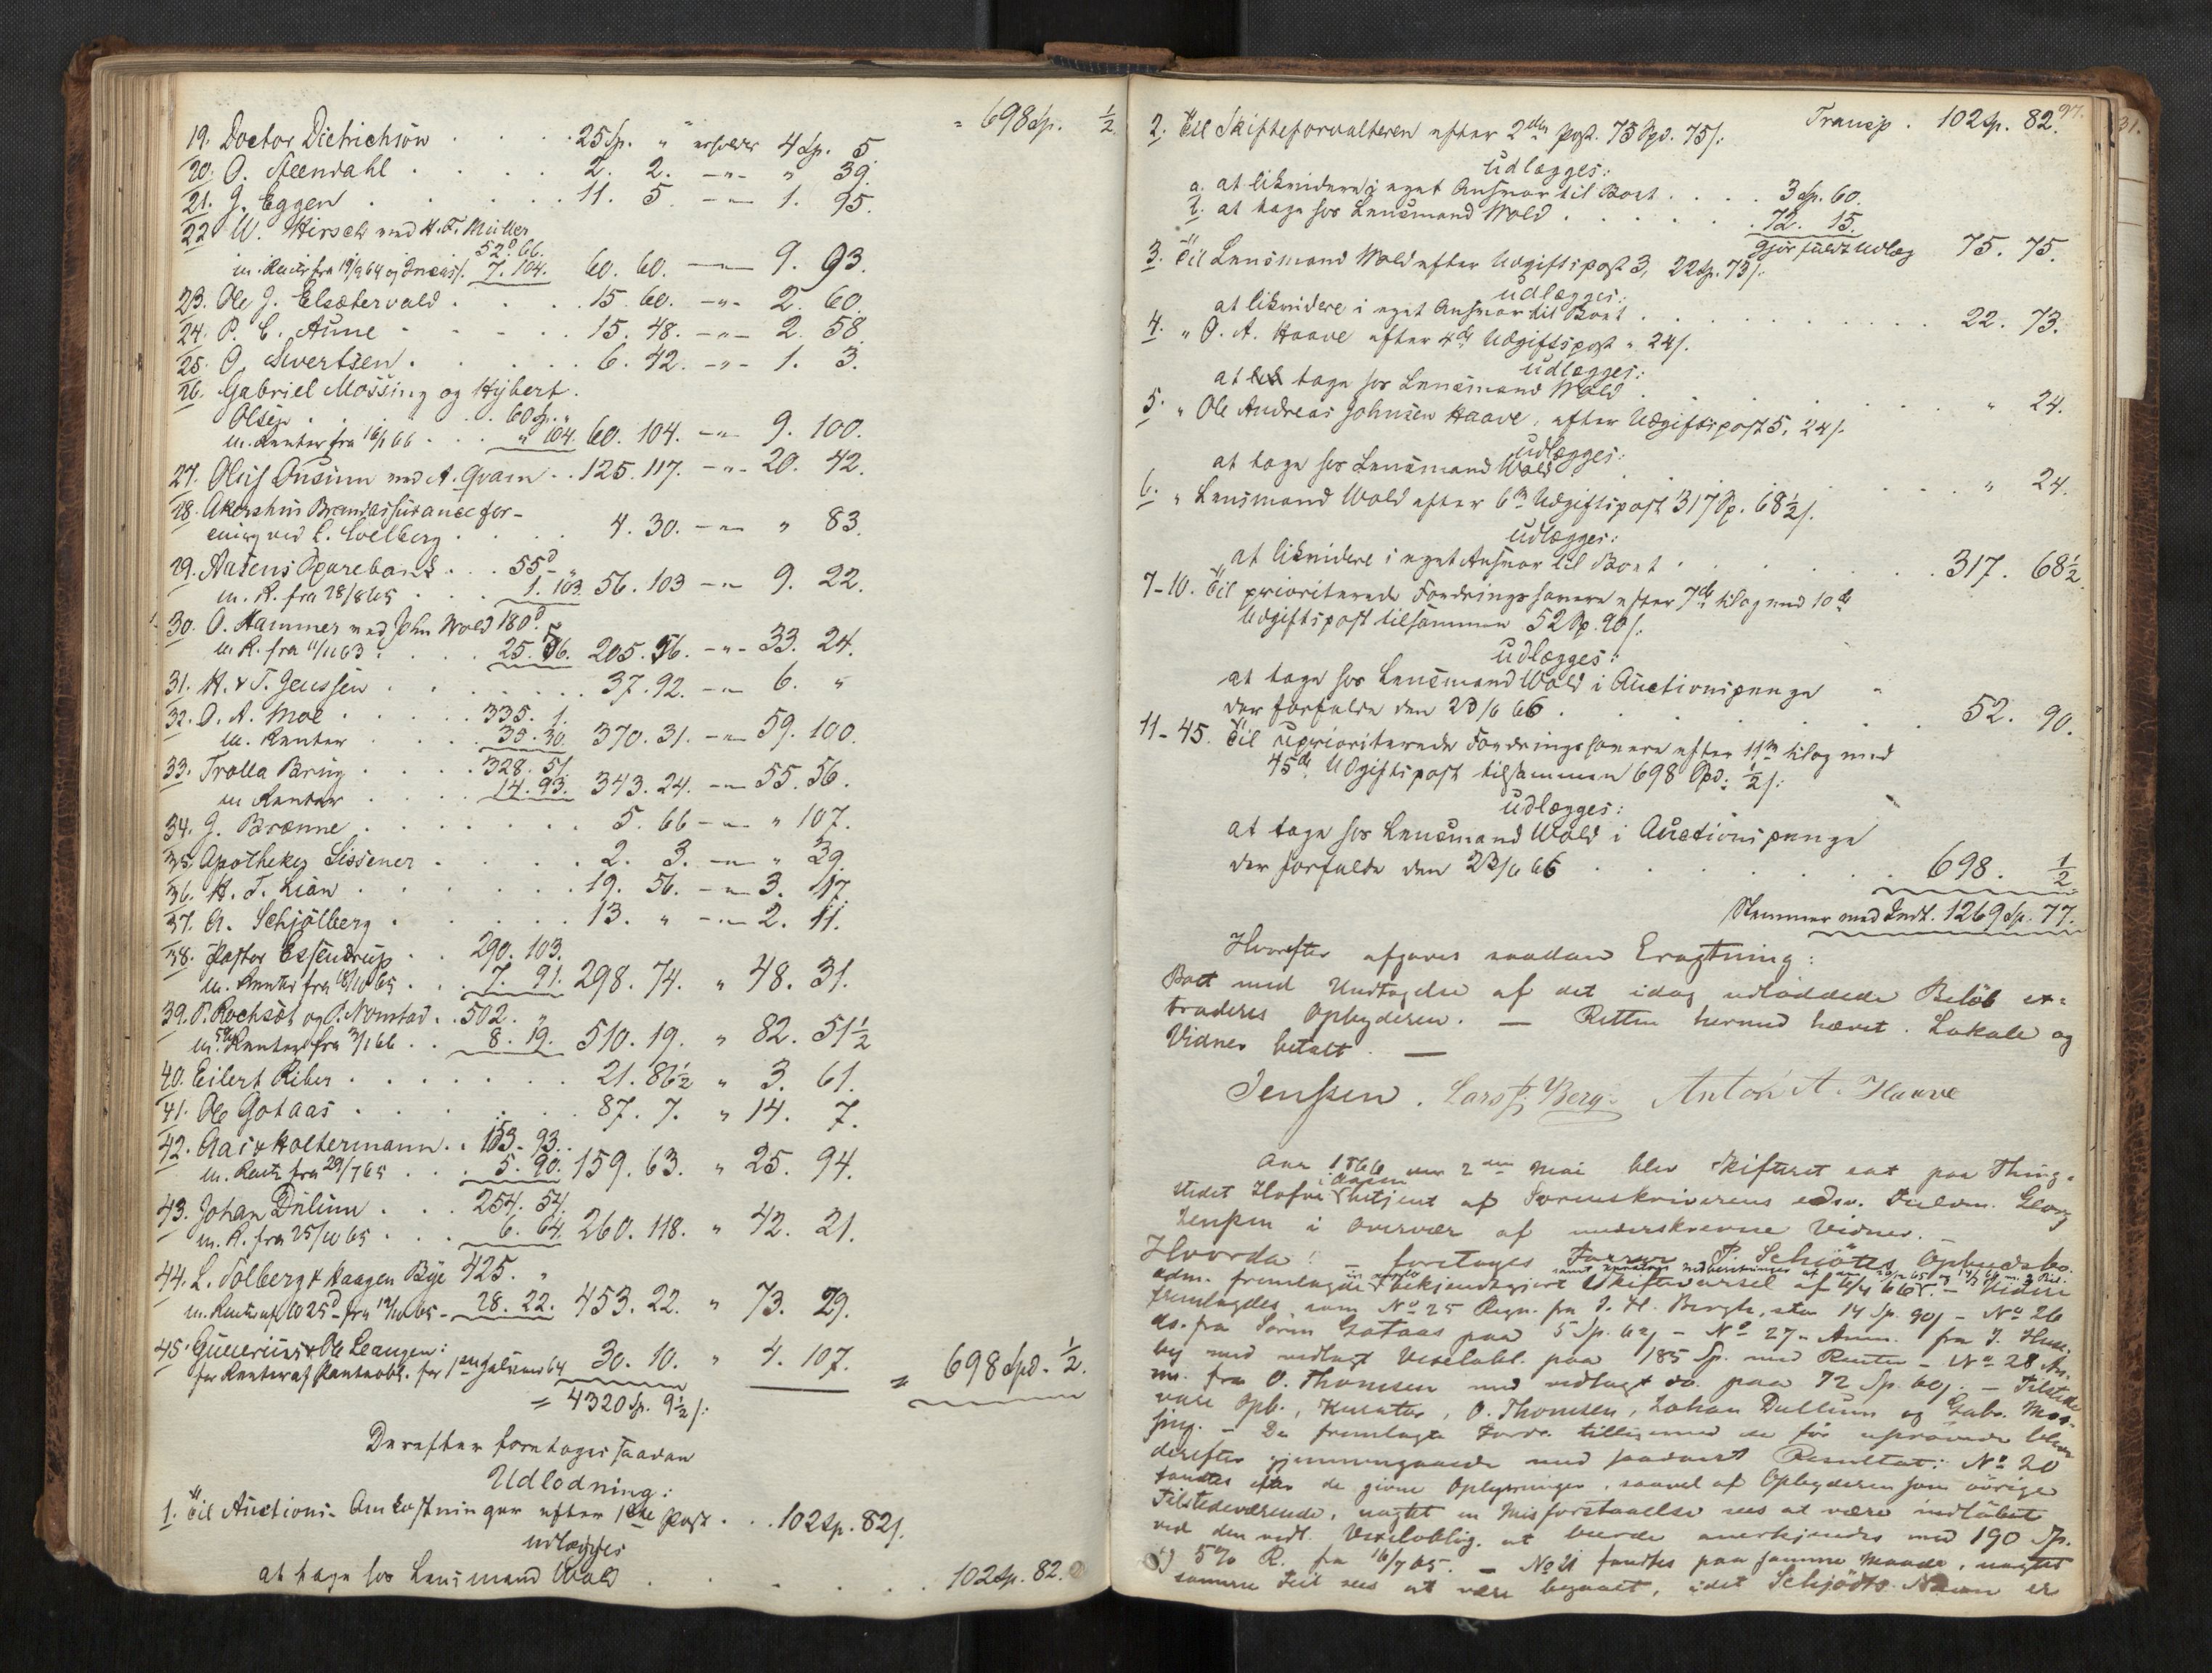 = 698 Sp. ½
19. Doctor Dietrichson . . . . 25 Sp. " erholder 4 Sp. 5.
20. O. Steendahl . . . . 2. 2. -"- " 39.
21. J. Eggen . . . . . 11. 5. -"- 1. 95.
22 W. Hirsch med H. F. Müller
52 d 66.
m. Renter fra 19/9 64 og 7. 104. 60. 60. -"- 9. 93.
23. Ole J. Elsætervald . . . . 15. 60. -"- 2. 60.
24. P. C. Aune - - - - . 15. 48. -"- 2. 58.
25. O. Sivertsen . . . . . 6. 42. -"- 1. 3.
26. Gabriel Mossing og Hybert
Olsen . . . . . 60 Sp. "
m. Renter fra 16/1 66 . . . " 104. 60. 104. -"- 9. 100.
27. Oluf Onsum med A. Qvam . . 125. 117. -"- 20. 42.
28. Akershus Brandassurancefor-
ening ved L. Solberg . . . . 4. 30. -"- " 83.
29. Aasens Sparebank . . . 55 d "
m. R. fra 28/8 65 . . . 1. 103. 56. 103 -"- 9. 22.
30. O. Hammer med John Wold 180 d. "
m. R. fra 11/11 63 . . . . 25. 56. 205. 56. -"- 33. 24.
31. H. & T. Jenssen . . . . . . . 37. 92. -"- 6. "
32. O. A. Moe . . . . . 335. 1.
m. Renter . . . . 35. 30. 370. 31. -"- 59. 100.
33. Trolla Brug . . . . 328. 51.
m Renter . . . . 14. 93. 343. 24. -"- 55. 56.
34. J. Brænne . . . . . . . 5. 66 -"- " 107.
35. Apotheker Sissener . . . . . 2. 3. -"- " 39.
36. H. T. Lian . . . . . . . 19. 56. -"- 3. 17.
37. A. Schjølberg . . . . . . 13. " -"- 2. 11.
38. Pastor Essendrup . . 290. 103.
m. Renter fra 18/10 65 . . . 7. 91. 298. 74. " 48. 31.
39. P. Rochsøt og P. Nomstad . . 502. "
m. 5% Renter fra 3/1 66 . . 8. 19. 510. 19. " 82. 51½
40. Eilert Riber . . . . . . . 21. 86½ " 3. 61.
41. Ole Gotaas . . . . . . . 87. 7. " 14. 7.
42. Aas & Holtermann . . 153. 93.
m. Rente fra 29/7 65 . . . 5. 90. 159. 63. " 25. 94.
43. Johan Dulum . . . 254. 54.
m. R. fra 25/10 65 . . . 6. 64. 260. 118. " 42. 21.
44. L. Solberg & Haagen Bye 425. "
m. Rente af 25 d fra 12/10 65 - 28. 22. 453. 22. " 73. 29.
45. Gunerius & Ole Leangen:
for Renter af Panteobl. for 64 30. 10. " 4. 107. = 698 Spd. ½.
= 4320 Sp. 9½ s.
Derefter foretoges saadan
Udlodning:
1. Til Auctions-Omkostninger efter 1ste Post . . . 102 Sp. 82 s.
udlægges
at tage hos Lensmand Wold . . . . . . 102 Sp. 82.
97.
Transp . 102 Sp. 82.
2. Til Skifteforvalteren efter 2den Post. 75 Spd. 75 s.
udlægges:
a. at likvidere i eget Ansvar til Boet . . . . 3 Sp. 60.
b. at tage hos Lensmand Wold . . . . . . 72. 15.
gjør fuldt Udlæg 75. 75.
3. Til Lensmand Wold efter Udgiftspost 3, 22 Sp. 73 s.
udlægges:
at likvidere i eget Ansvar til Boet . . . . . . . . . 22. 73.
4. " O. A. Haave efter 4de Udgiftspost " 24 s.
udlægges:
at tage hos Lensmand Wold . . . . . . . . " 24.
5. " Ole Andreas Johnsen Haave, efter Udgiftspost 5, 24 s.
udlægges:
at tage hos Lensmand Wold . . . . . . . . " 24.
6. " Lensmand Wold efter 6te Udgiftspost 317 Sp. 68½ s.
udlægges:
at likvidere i eget Ansvar til Boet . . . . . . . 317. 68½
7-10. Til prioriterede Fordringshavere efter 7de til og med 10de
Udgiftspost tilsammen 52 Sp. 90 s.
udlægges:
at tage hos Lensmand Wold i Auctionspenge "
der forfalde den 23/6 66 . . . . . . . . 52. 90.
11-45. Til uprioriterede Fordringshavere efter 11te til og med
45de Udgiftspost tilsammen 698 Spd. ½ s.
udlægges:
at tage hos Lensmand Wold i Auctionspenge
der forfalde den 23/6 66 . . . . . . . 698. ½
Stemmer med Indt. 1269 Sp. 77.
Hvorefter afgaves saadan Eragtning:
Boet med Undtagelse af det idag udloddede Beløb ex-
traderes Opbyderen. — Retten hermed hævet. Lokale og
Vidner betalt. —
Jenssen. Lars P. Berg. Anton A. Haave
Aar 1866 den 2den Mai blev Skifteret sat paa Thing-
stedet Hofni i Aasen betjent af Sorenskriverens edsv. Fuldm. Georg
Jenssen i Overvær af underskrevne Vidner.
Hvorda! — foretoges Farver P. Schiøtts Opbudsbo.
Adm. fremlagde bekjendtgjort Skiftevarsel af 6/4 66. — Videre
fremlagdes som No 25 Regn. fra J. H. Bergh, stor 14 Sp. 90 s - No 26
do. fra Søren Gotaas paa 5 Sp. 62 s - No 27 - Anm. fra J. Huse-
by med vedlagt Vexelobl. paa 185 Sp. med Renter - No 28 An-
m. fra O. Thomsen med vedlagt do. paa 72 Sp. 60 s. - Tilstede
vare Opb., Kurator, O. Thomsen, Johan Dullum og Gabr. Mos-
sing. - De fremlagte Fordr. tilligemed de før uprøvede bleve
derefter gjennemgaaede med saadant Resultat: No 20
fandtes efter de givne Oplysninger, saavel af Opbyderen som øvrige
Tilstedeværende, uagtet en Misforstaaelse sees at være indløbet
ved den vedl. Vexeloblig. at burde anerkjendes med 190 Sp.
5% R. fra 16/7 65. - No 21 fandtes paa samme Maade, uagtet
samme Feil sees at være begaaet, idet Schjødts Navn er